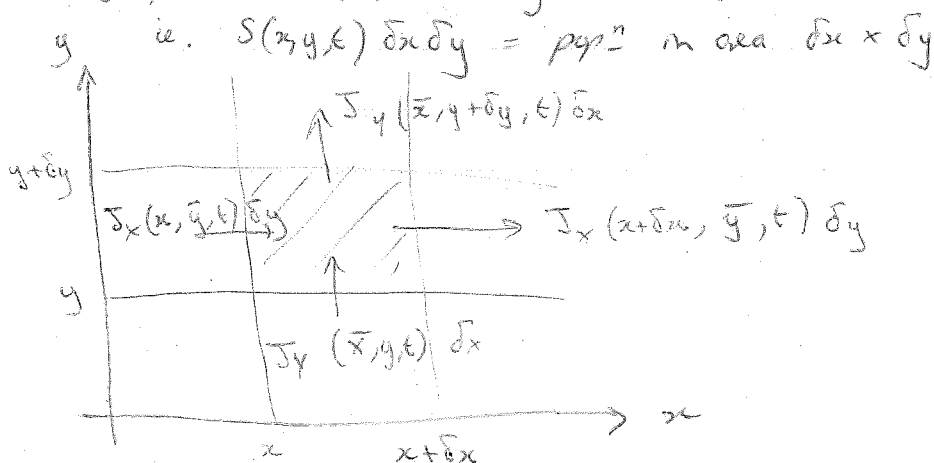 ie. S(x,y,t) δx δy = popⁿ in area δx × δy
y
J_y (x̄, y+δy, t) δx
y+δy
J_x (x, ȳ, t) δy
J_x (x+δx, ȳ, t) δy
y
J_y (x̄, y, t) δx
x
x
x+δx